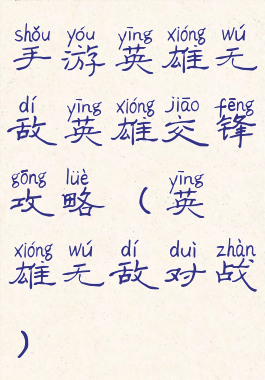 shǒu yóu yīng xióng wú
手游英雄无
dí yīng xióng jiāo fēng
敌英雄交锋
gōng lüè yīng
攻略（英
xióng wú dí duì zhàn
雄无敌对战
）